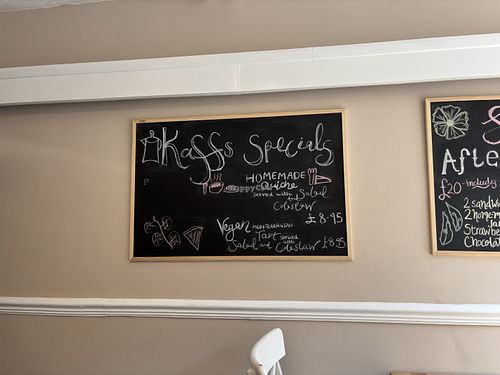 Kaffs Specials
HOMEMADE
Quiche
served with Salad
and
Coleslaw
£8.95
Vegan MEDITERRANIAN
Tart served
Salad and with Coleslaw £8.95
Afte
£20 includes
2 sandw
2 home
Strawbe
Chocola